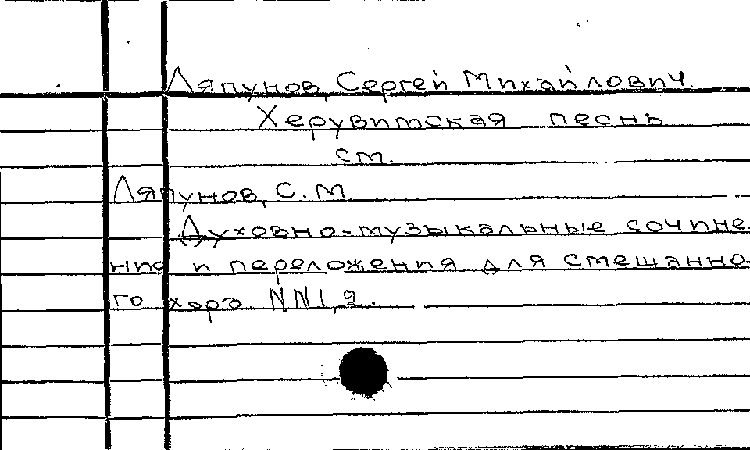 Ляпунов, Сергей Михайлович
Херувимская песнь
см.
Ляпунов, С. М
Духовно-музыкальные сочине
ния и переложения для смешанно
го хора NN1,2.